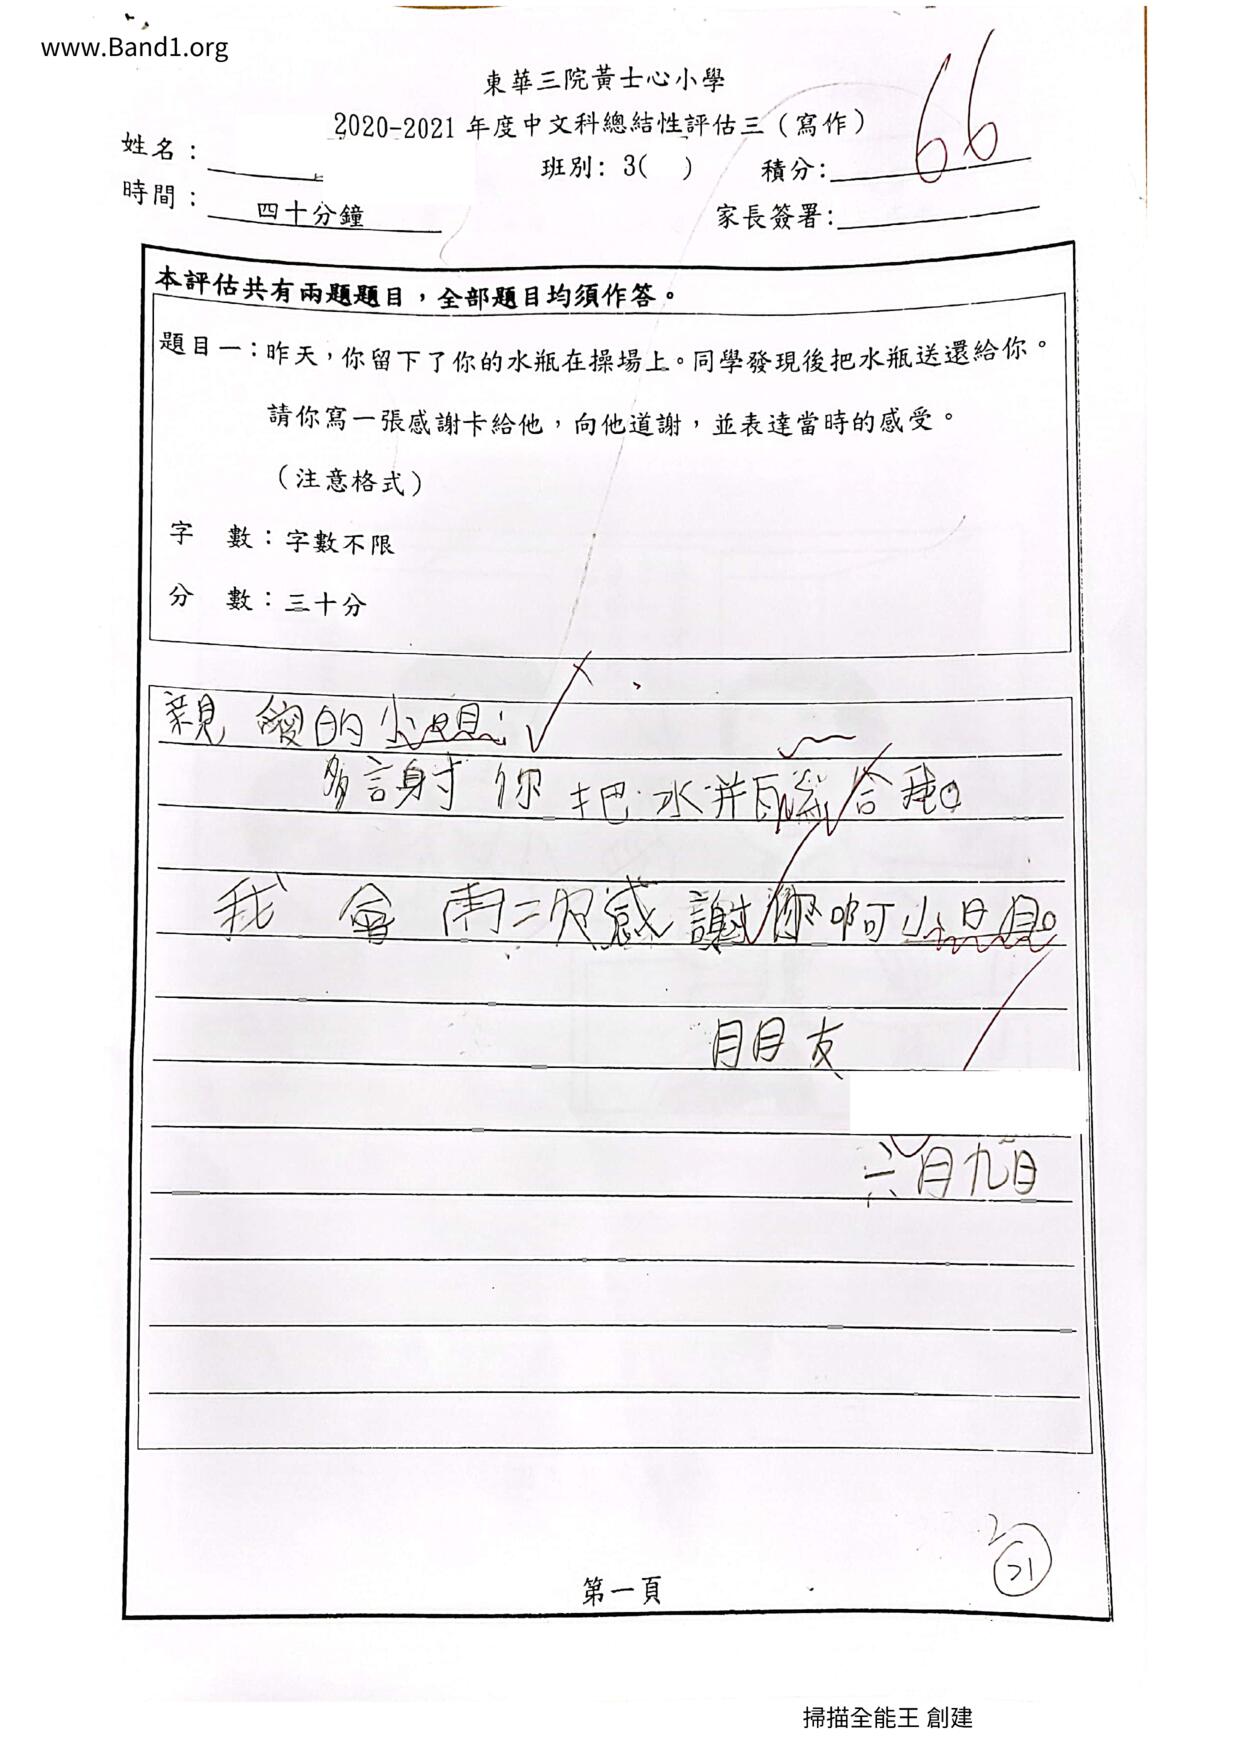 www.Band1.org
東華三院黃士心小學
2020-2021年度中文科總結性評估三（寫作）
66
姓名：
班別：3( ) 積分：
時間：四十分鐘
家長簽署：
本評估共有兩題題目，全部題目均須作答。
題目一：昨天，你留下了你的水瓶在操場上。同學發現後把水瓶送還給你。
請你寫一張感謝卡給他，向他道謝，並表達當時的感受。
（注意格式）
字 數：字數不限
分 數：三十分
親愛的小明：
多謝你把水瓶 給我。
我會再一次感謝你啊小明。
朋友
六月九日
21
第一頁
掃描全能王 創建